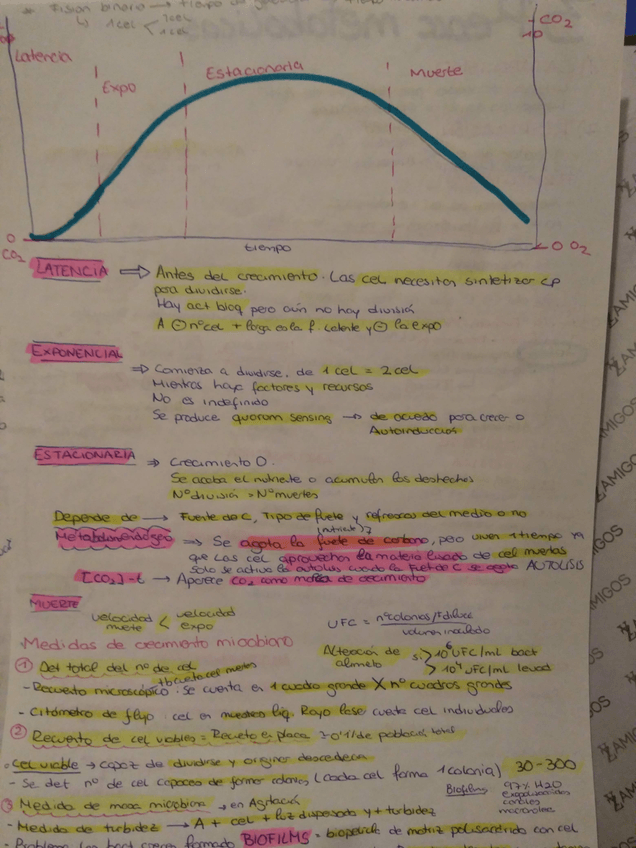 Fisión binaria → tiempo de
↳ 1cel < 1cel
1cel
CO2
10
Latencia
Expo
Estacionaria
Muerte
0
CO2
tiempo
0 O2
LATENCIA ⇒ Antes del crecimiento. Las cel necesitan sintetizar cp
para dividirse.
Hay act bioq pero aún no hay división
A ⊖ nºcel + larga es la f. latente y ⊖ la expo
EXPONENCIAL
⇒ Comienza a dividirse. de 1 cel = 2 cel
Mientras haya factores y recursos
No es indefinido
Se produce quorum sensing → de acuerdo para crecer o
Autoinducción
ESTACIONARIA ⇒ Crecimiento 0.
Se acaba el nutriente o acumulan los deshechos
Nº división = Nº muertes
Depende de → Fuente de C, Tipo de fuente y refrescas del medio o no
(nutriente)
⇒ Se agota la fuente de carbono, pero viven + tiempo ya
que las cel aprovechan la materia liberada de cel muertas
Solo se activa la autolisis cuando la Fuet de C se agota AUTOLISIS
[CO2]-t → Aparece CO2 como de crecimiento
MUERTE
velocidad muerte < velocidad expo
UFC = nºcolonias/Fdiluc
volumen inoculado
Medidas de crecimiento microbiano
Alteración de alimento si > 10⁶ UFC/ml bact
> 10⁴ UFC/ml levad
① Det total del nº de cel
tb cueta cel muertas
- Recuento microscópico: se cuenta en 1 cuadro grande X nº cuadros grandes
- Citómetro de flujo: cel en liq. Rayo laser cuenta cel individuales
② Recuento de cel viables = Recueto en placa de poblacion total
• Cel viable → capaz de dividirse y originar descedecia
- Se det nº de cel capaces de formar colonias (cada cel forma 1 colonia) 30-300
Biofilms
97% H2O
exopolisacaridos
canales
③ Medida de masa microbiana → en Agitación
- Medida de turbidez → A + cel + luz dispersada y + turbidez
- Problema las bact crecen formado BIOFILMS = biopelicula de matriz polisacarido con cel
AMIGOS
AMIGOS
AMIGOS
AMIGOS